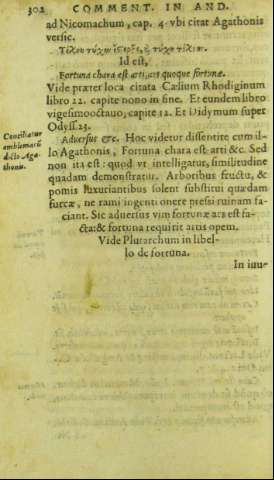 302 COMMENT. IN AND.
ad Nicomachum, cap. 4. vbi citat Agathonis
versic.
Id est,
Fortuna chara est arti, ars quoque fortunæ.
Vide præter loca citata Cælium Rhodiginum
libro 22. capite nono in fine. Et eundem libro
vigesimooctauo, capite 12. Et Didymum super
Odyss. 23.
Conciliatur
emblema cū
dicto Aga-
thonis.
Aduersus &c. Hoc videtur dissentire cum il-
lo Agathonis, Fortuna chara est arti &c. Sed
non ita est: quod vt intelligatur, similitudine
quadam demonstratur. Arboribus fructu, &
pomis luxuriantibus solent substitui quædam
furcæ, ne rami ingenti onere pressi ruinam fa-
ciant. Sic aduersus vim fortunæ ars est fa-
cta: & fortuna requirit artis opem.
Vide Plutarchum in libel-
lo de fortuna.
In iuu-